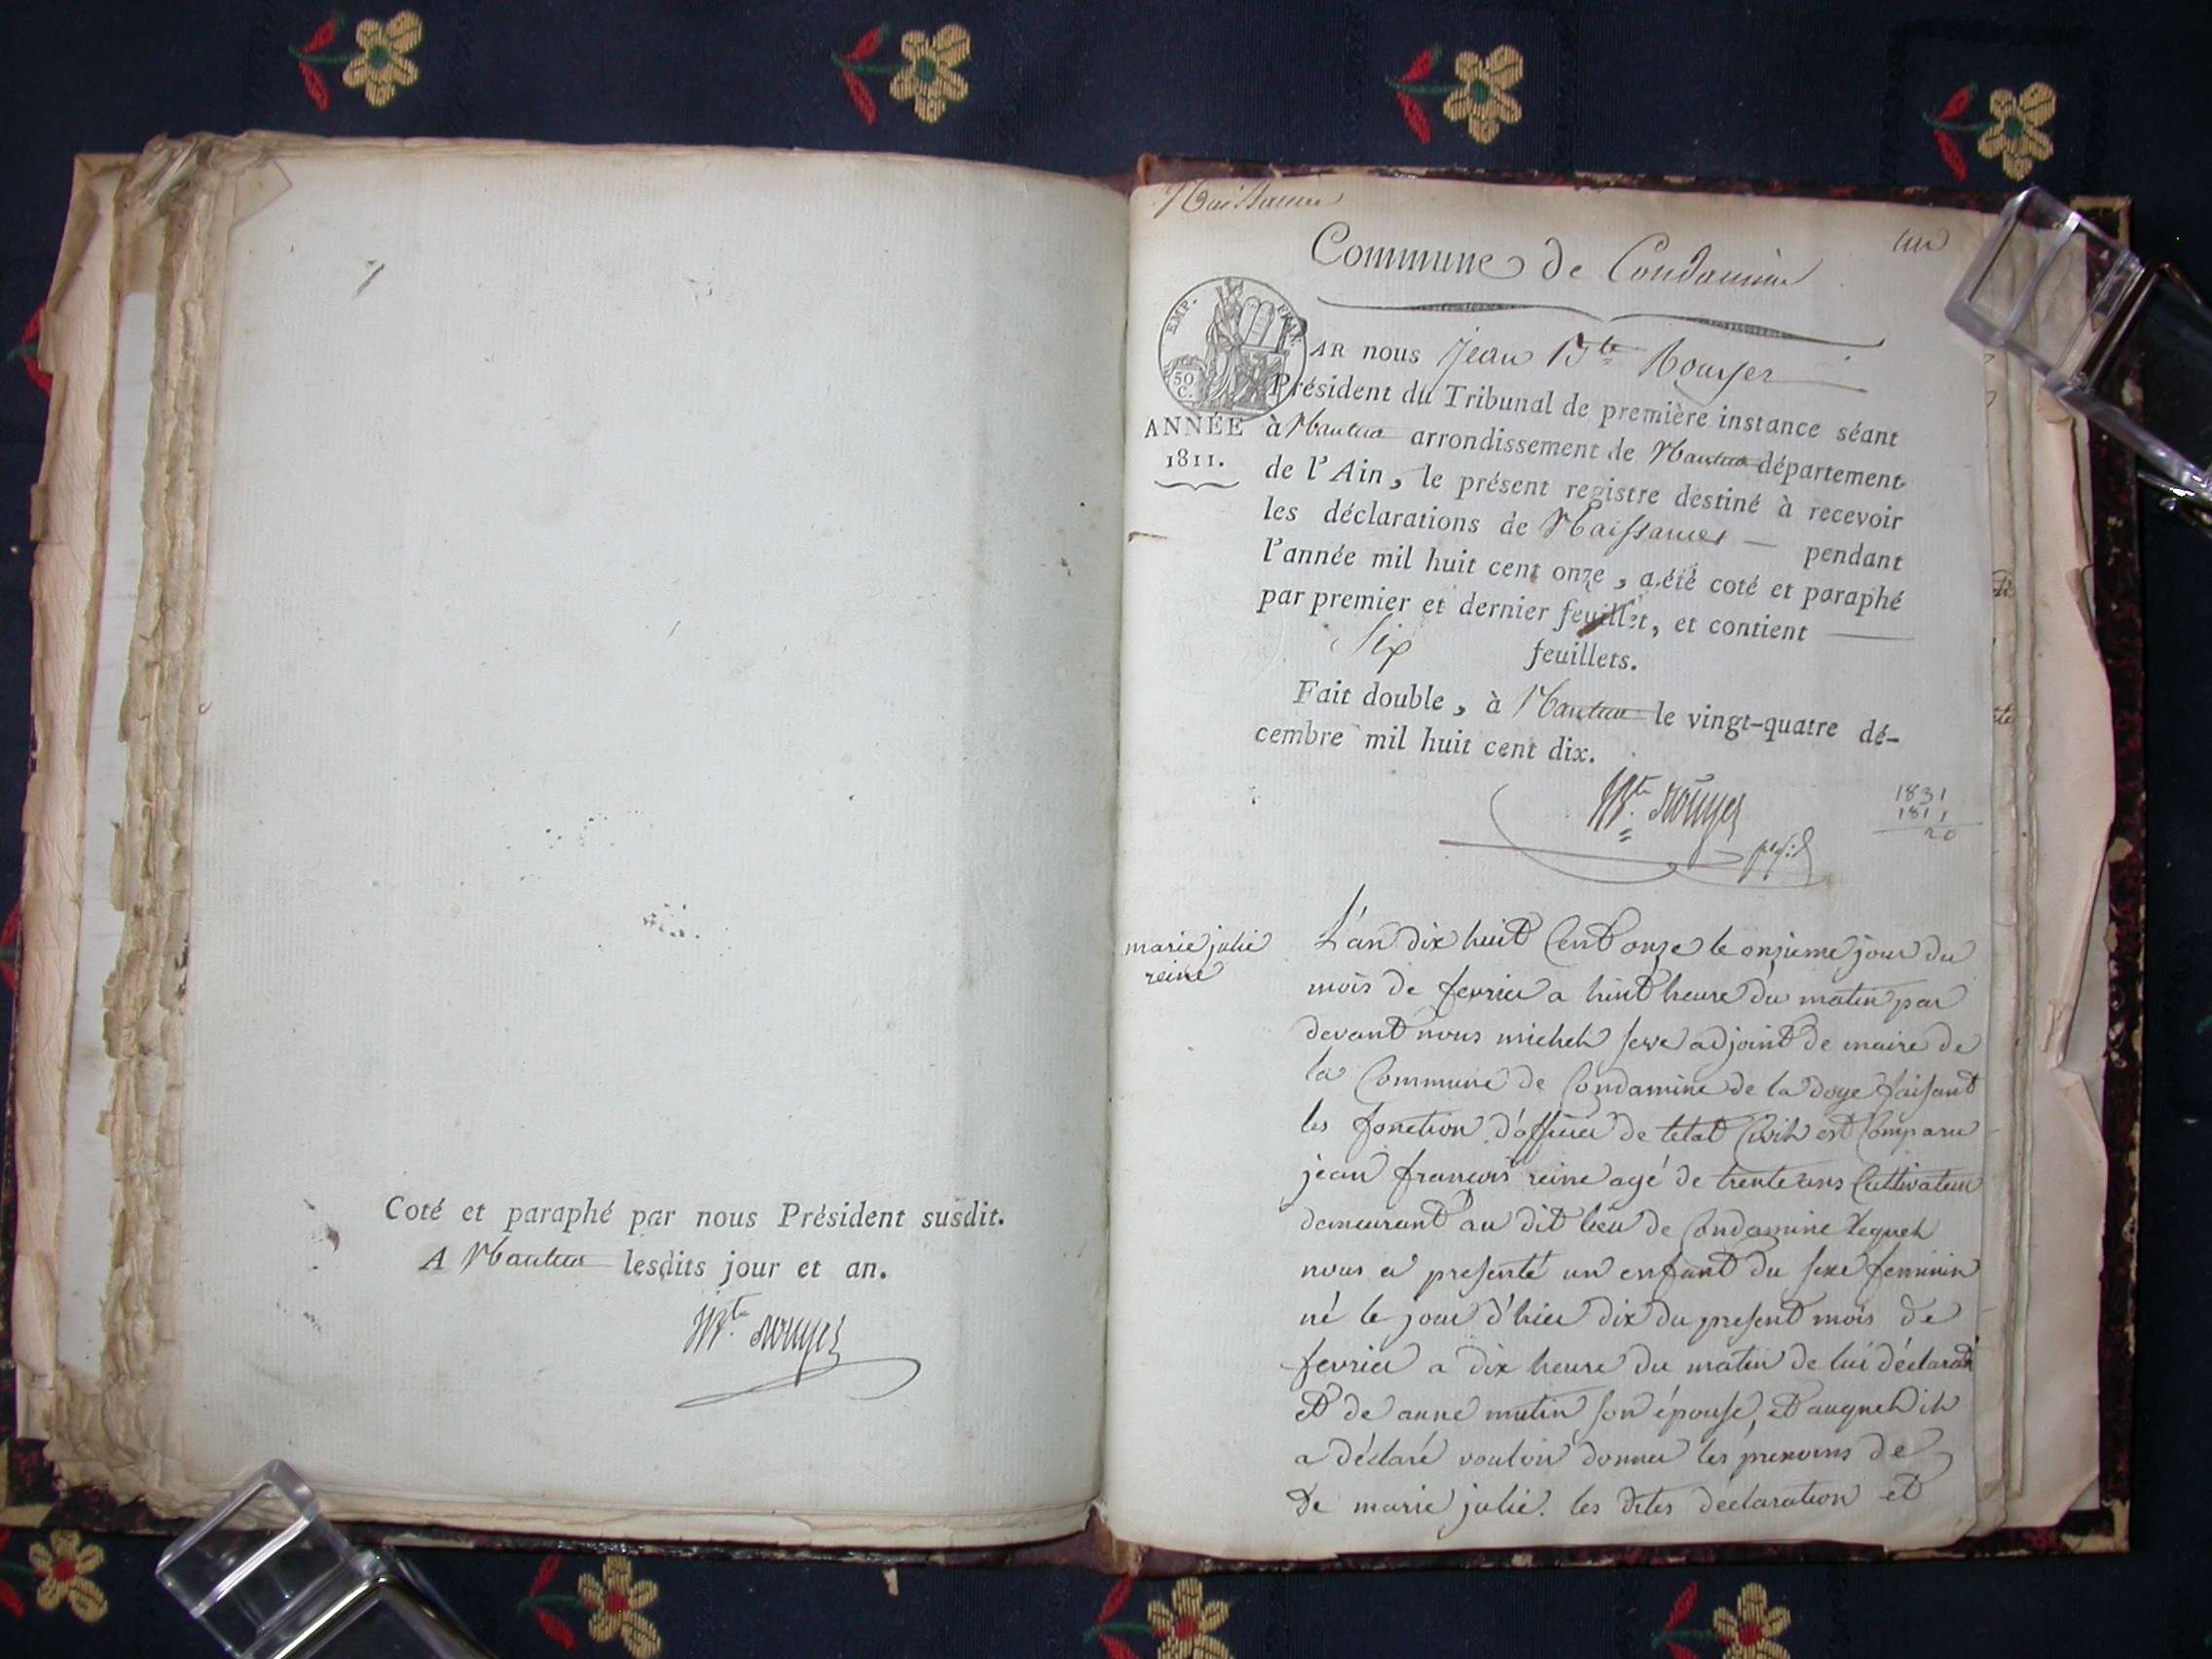 Coté et paraphé par nous Président susdit.
A Nantua lesdits jour et an.
JBte Rouyer
Naissances
un
Commune de Condamine
EMP. FRAN.
50 C.
PAR nous Jean Bte Rouyer
Président du Tribunal de première instance séant
ANNÉE
1811.
à Nantua arrondissement de Nantua département
de l'Ain, le présent registre destiné à recevoir
les déclarations de Naissances — pendant
l'année mil huit cent onze, a été coté et paraphé
par premier et dernier feuillet, et contient —
Six feuillets.
Fait double, à Nantua le vingt-quatre dé-
cembre mil huit cent dix.
JBte Rouyer
1831
1811
20
marie julie
reine
L'an dix huit Cent onze le onzieme jour du
mois de fevrier a huit heure du matin par
devant nous michel adjoint de maire de
la Commune de Condamine de la doye faisant
les fonction d'officier de letat Civil est Comparu
jean francois reine agé de trente ans Cultivateur
demeurant au dit lieu de Condamine lequel
nous a presenté un enfant du sexe feminin
né le jour d'hier dix du present mois de
fevrier a dix heure du matin de lui déclarant
et de anne mutin son épouse, et auquel il
a déclaré vouloir donner les prenoms de
de marie julie. les dites declaration et